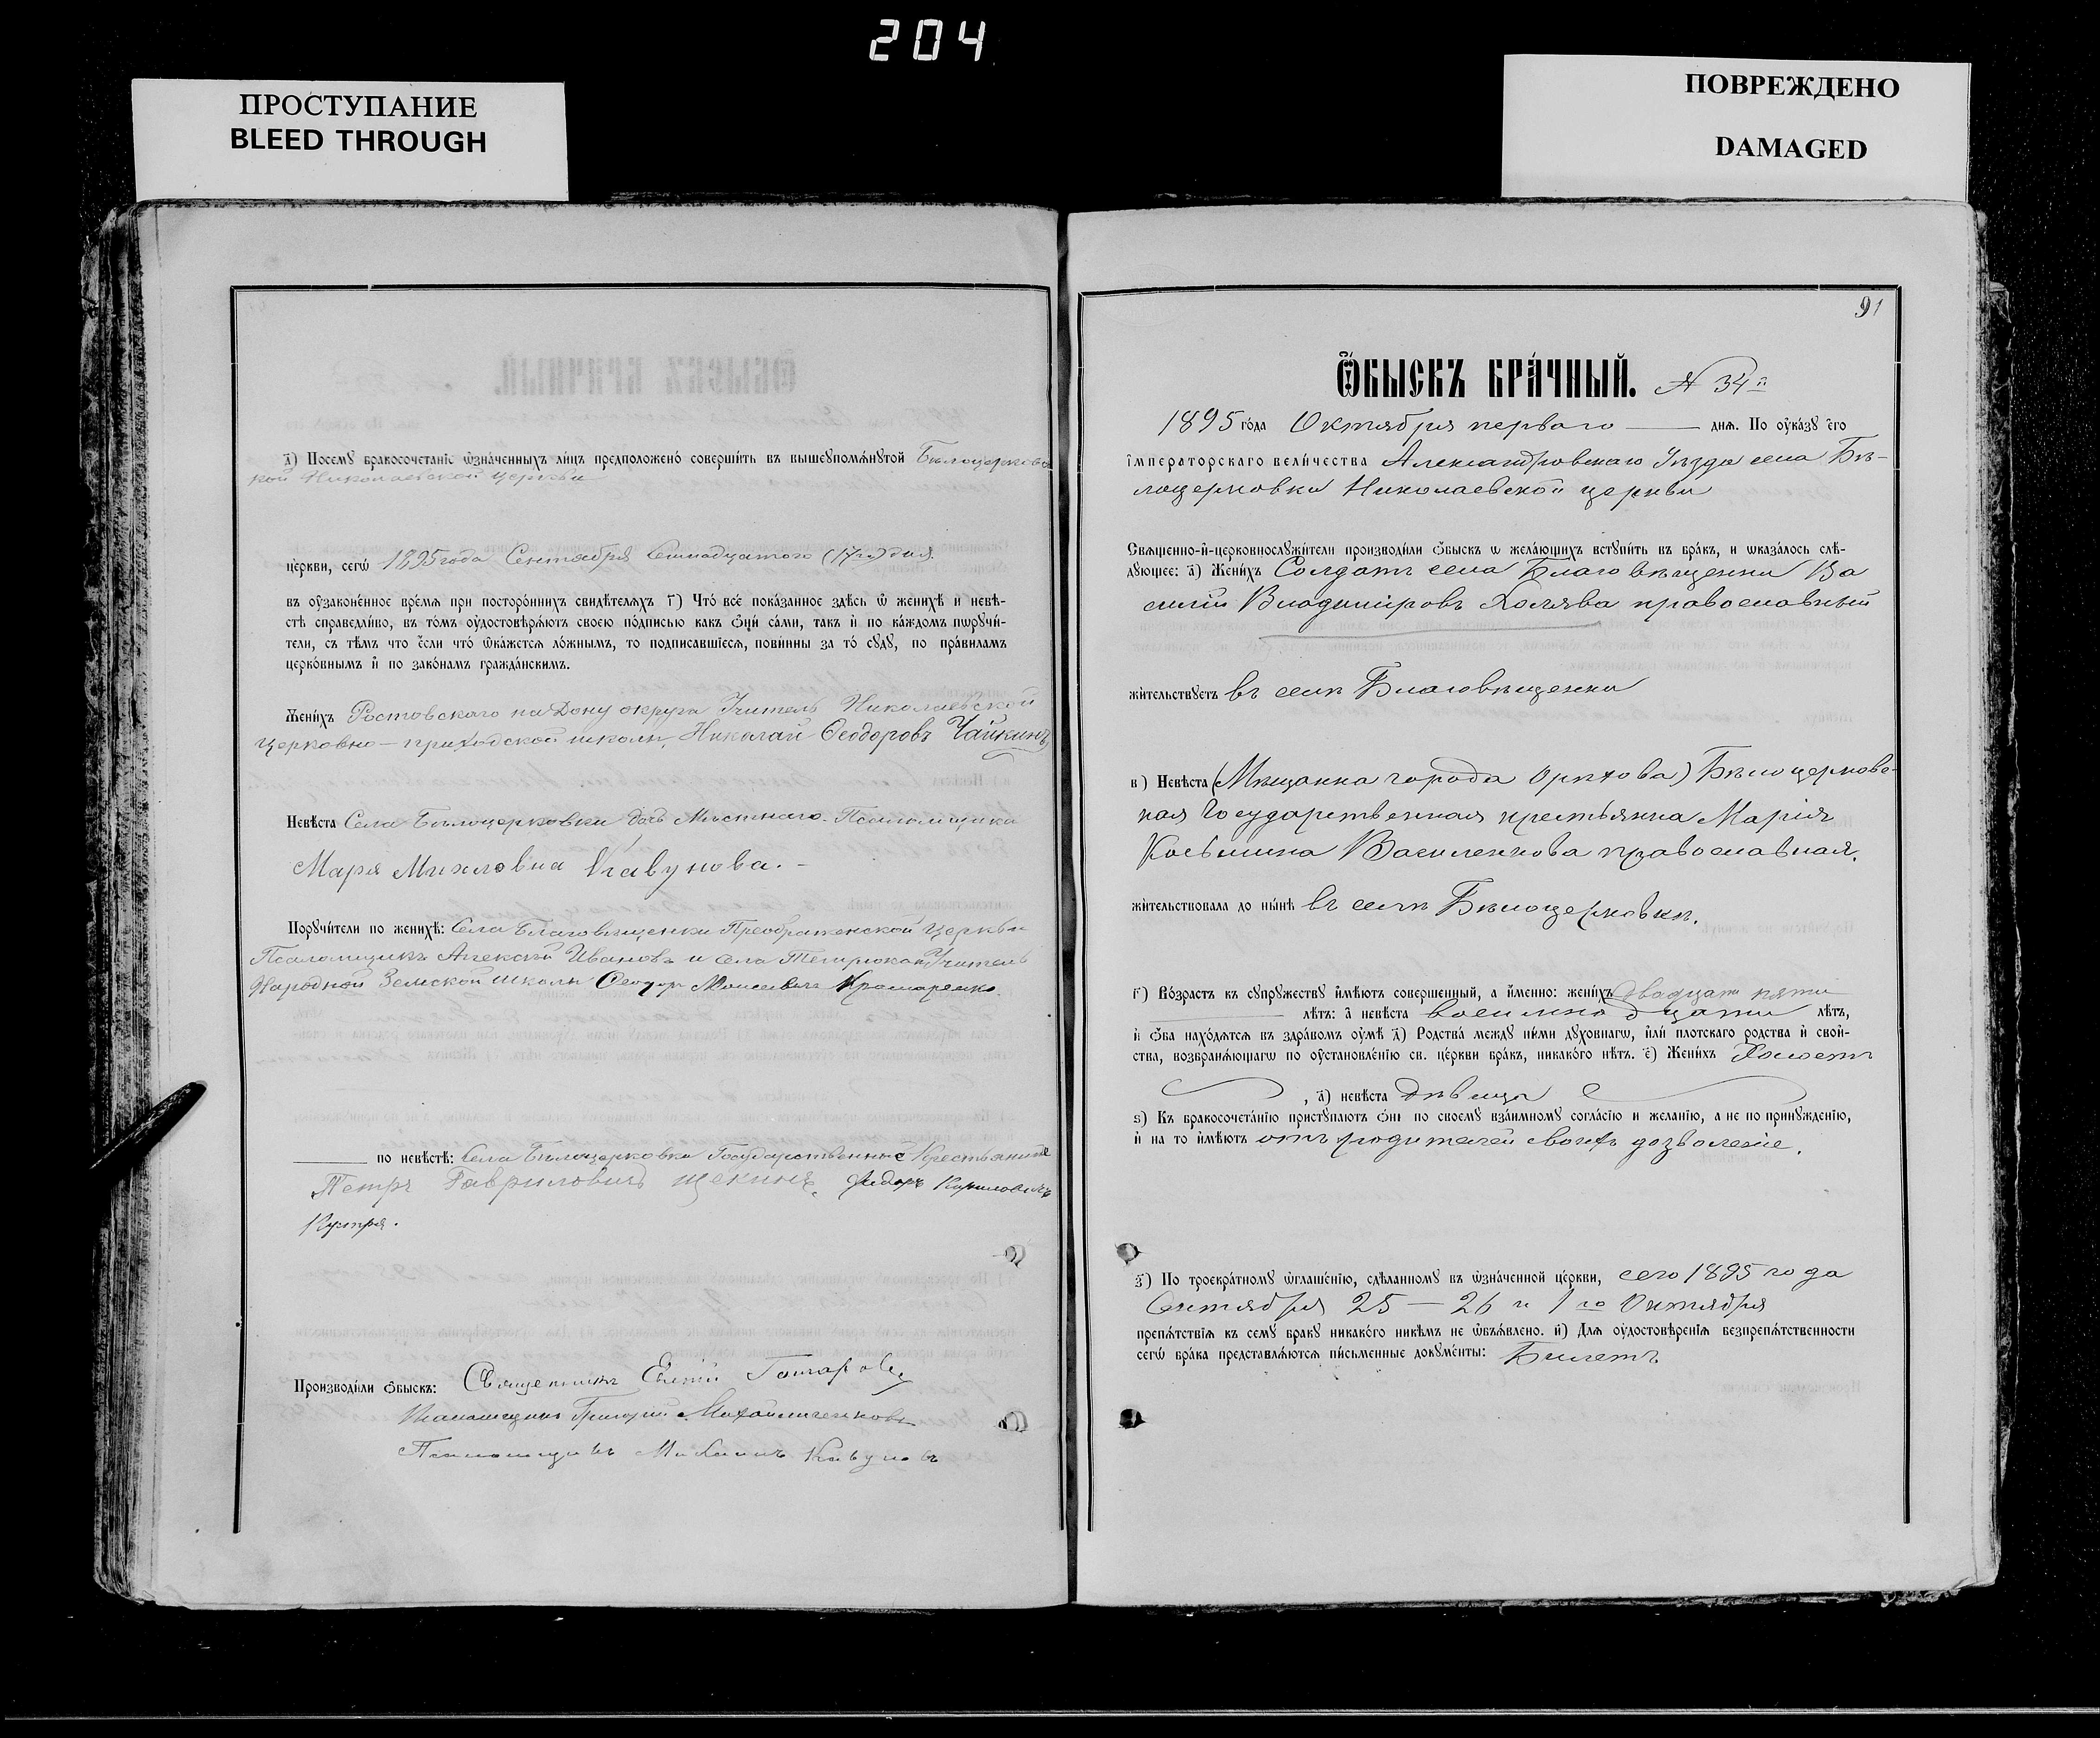 204
ПРОСТУПАНИЕ
BLEED THROUGH
ПОВРЕЖДЕНО
DAMAGED
д҃) Посемꙋ бракосочетанїе ѡзначенныхъ лицъ предположено совершить въ вышеꙋпомѧнꙋтой Бѣлоцерковс
кой Николаевской Церкви
церкви, сегѡ 1895 года Сентября Семнадцатого (17го) дня.
въ ꙋзаконенное времѧ при постороннихъ свидѣтелѧхъ Г҃) Что все показанное здѣсь ѡ женихѣ и невѣ-
стѣ справедливо, въ томъ ꙋдостовѣрѧютъ своею подписью какъ ѻни сами, такъ и по каждомъ пѡрꙋчи-
тели, съ тѣмъ что если что ѡкажетсѧ ложнымъ, то подписавшїесѧ, повинны за то сꙋдꙋ, по правиламъ
церковнымъ и по законамъ гражданскимъ.
Женихъ Ростовского на Дону округа Учитель Николаевской
Церковно-приходской школы, Николай Ѳеодоровъ Чайкинъ
Невѣста Села Бѣлоцерковки дочь Мѣстнаго Псаломщика
Марія Михаловна Кавунова.-
Порꙋчители по женихѣ: Села Благовѣщенки Преображенской Церкви
Псаломщикъ Алексѣй Ивановъ и села Темрюка Учитель
Народной Земской школы Ѳеодоръ Моисеевичъ
по невѣстѣ: Села Бѣлоцерковки Государственные Крестьяние
Петръ Гавриловичъ Щекинъ, Федоръ Кириловичъ
Производили ѻбыскъ: Священникъ
Псаломщикъ Григорій Михайличенковъ
Псаломщикъ Михаилъ Кавуновъ
91
Ѻбыскъ брачный. № 34й
1895 года Октября перваго дня. По ꙋказꙋ єго
императорскаго величества Александровскаго Уѣзда села Бѣ-
лоцерковки Николаевской церкви
Свѧщенно-и-церковнослꙋжители производили ѻбыскъ ѡ желающихъ встꙋпить въ бракъ, и ѡказалось слѣ-
дꙋющее: а҃) Женихъ Солдатъ села Благовѣщенки Ва
силій Владиміровъ Холява православный
жительствꙋетъ въ селѣ Благовѣщенки
в) Невѣста (Мѣщанка города Орѣхова) Бѣлоцерковс-
кая Государственная крестьянка Марія
Косьмина Василенкова православная.
жительствовала до нынѣ въ селѣ Бѣлоцерковкѣ.
г҃) Возрастъ къ сꙋпрꙋжествꙋ имѣютъ совершенный, а именно: женихъ двадцати пяти
лѣтъ: а невѣста восемнадцати лѣтъ,
и ѻба находѧтсѧ въ здравомъ ꙋмѣ д҃) Родства междꙋ ними дꙋховнагѡ, или плотскаго родства и свой-
ства, возбранѧющагѡ по ꙋстановленїю св. церкви бракъ, никакого нѣтъ. е҃) Женихъ Холостъ
, а҃) невѣста дѣвица
ѕ) Къ бракосочетанїю пристꙋпаютъ ѻни по своемꙋ взаимномꙋ согласїю и желанїю, а не по принꙋжденїю,
и на то имѣютъ отъ родителей своихъ дозволеніе.
з҃) По троекратномꙋ ѡглашенїю, сдѣланномꙋ въ ѡзначенной церкви, сего 1895 года
Сентября 25 — 26 и 1го Октября
препѧтствїѧ къ семꙋ бракꙋ никакого никѣмъ не ѡбъѧвлено. и҃) Длѧ ꙋдостовѣренїѧ безпрепѧтственности
сегѡ брака представлѧютсѧ письменные докꙋменты: Билетъ